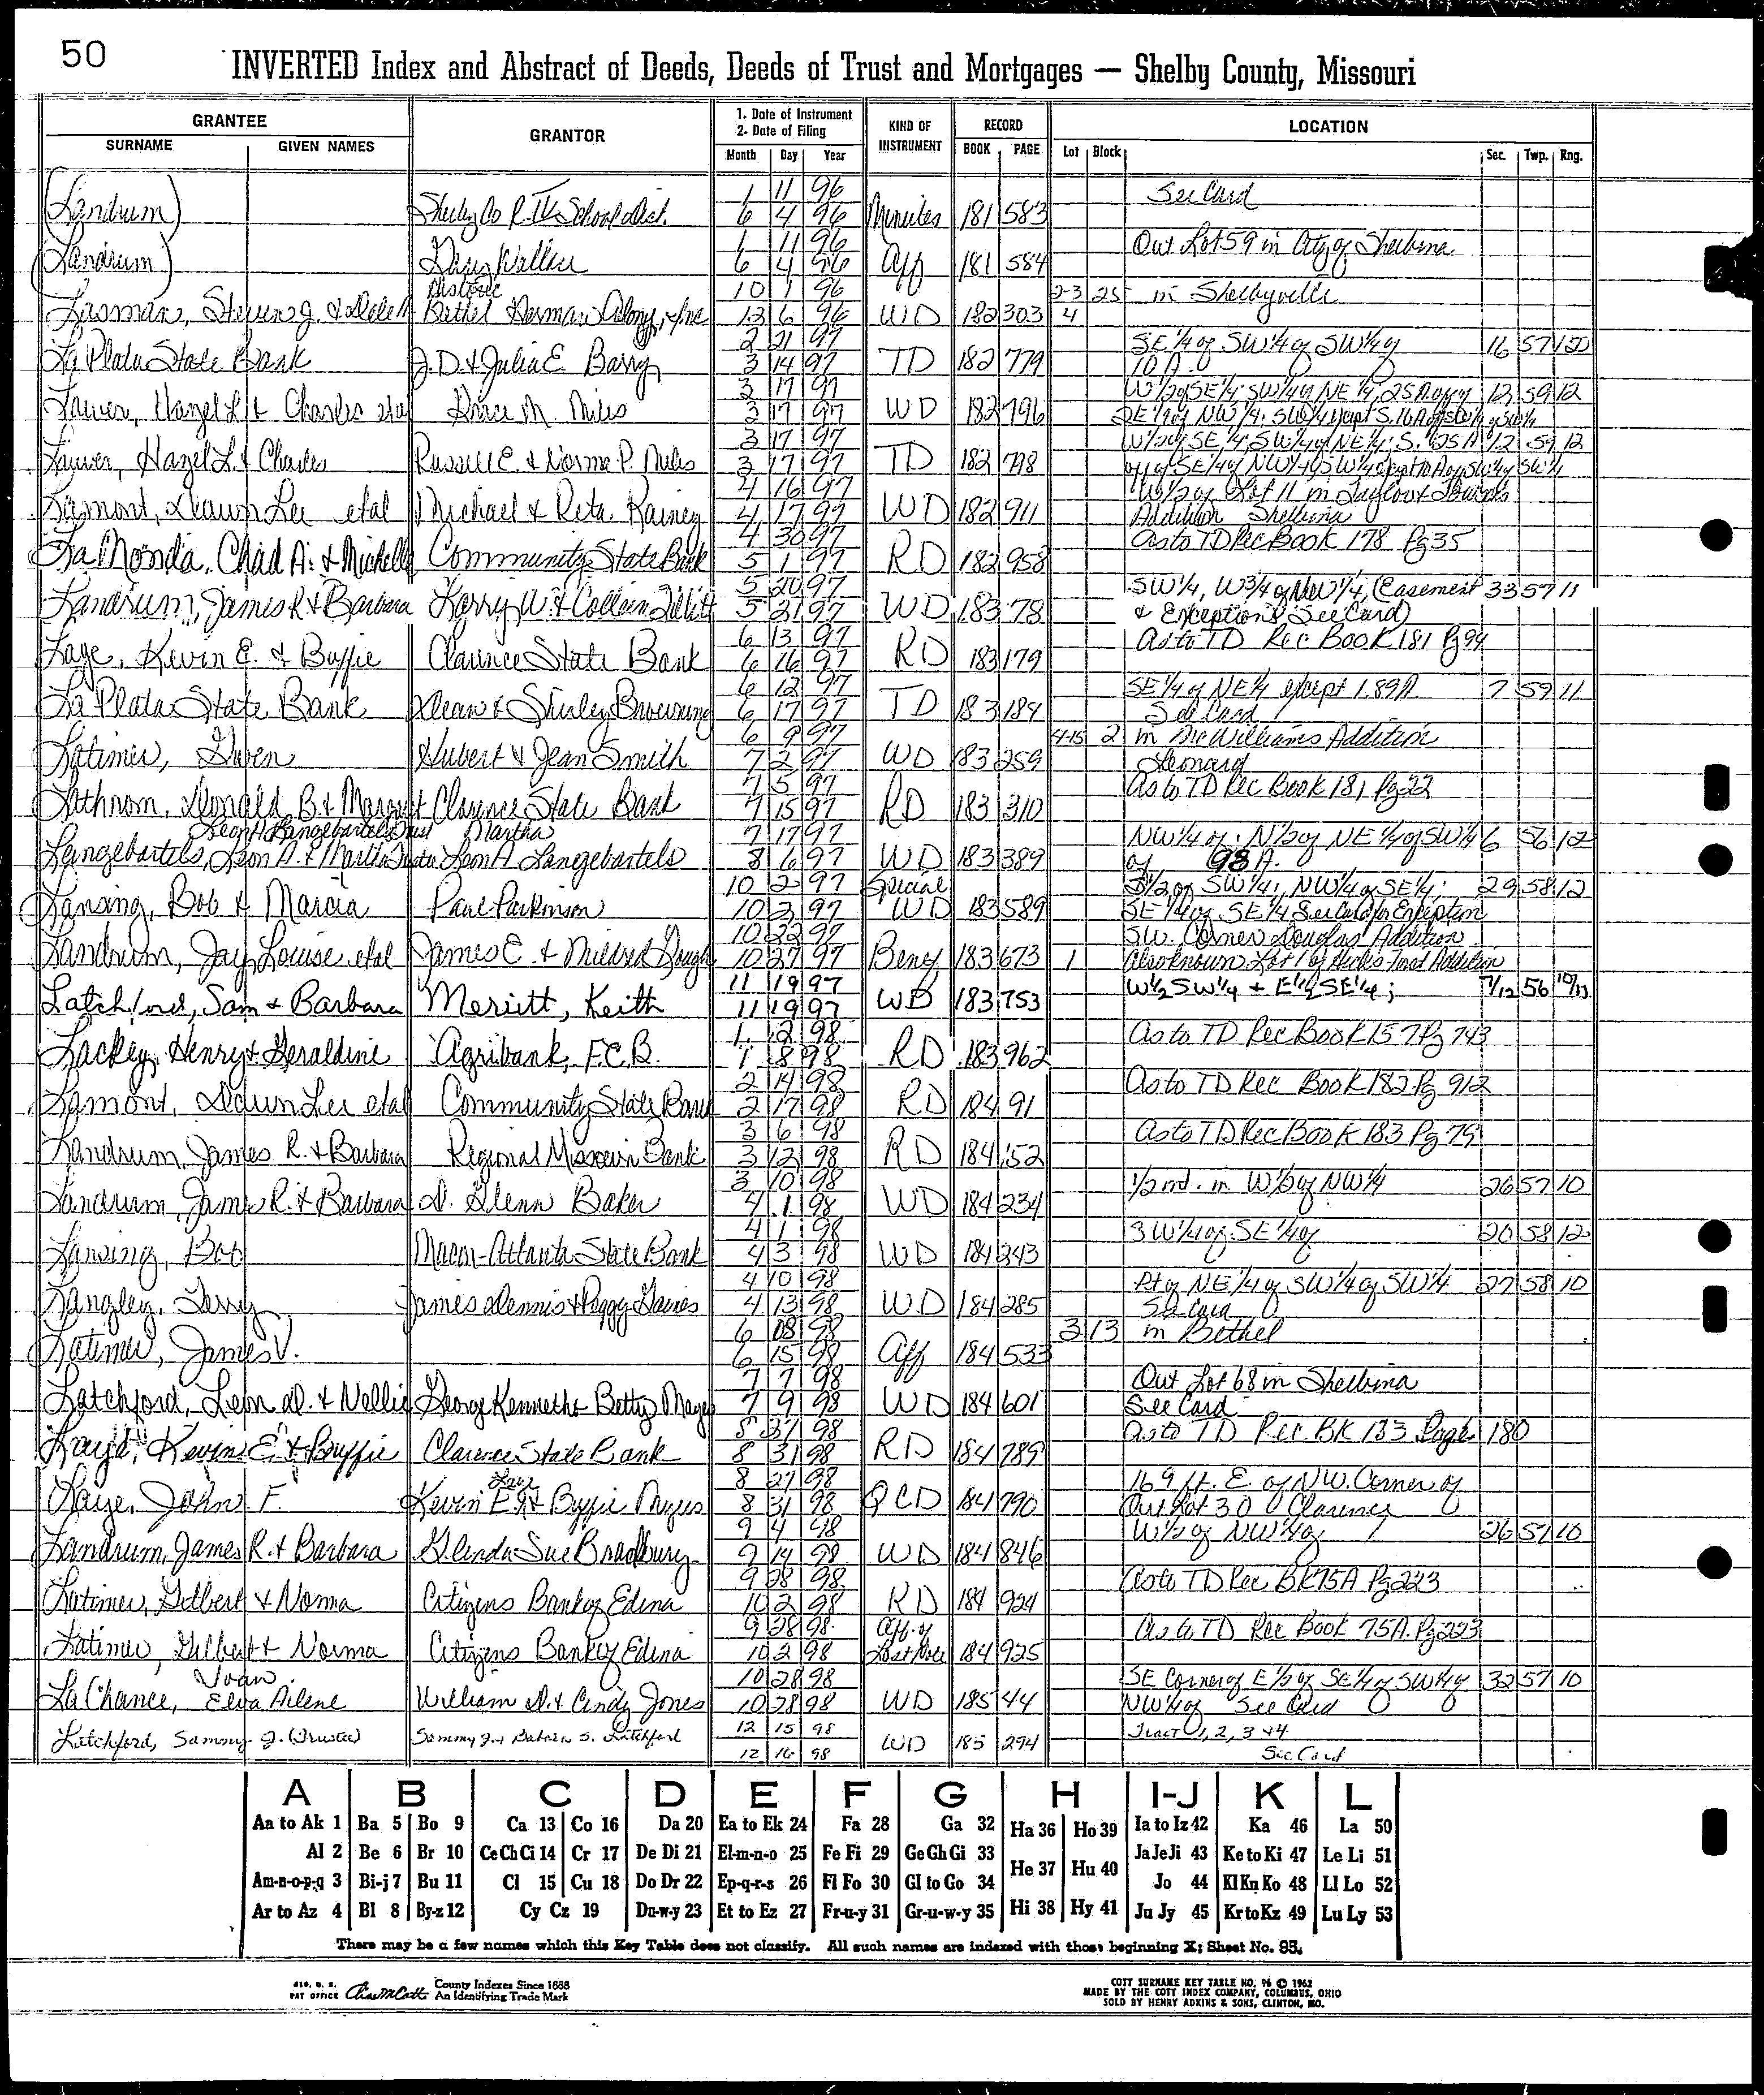 50
INVERTED Index and Abstract of Deeds, Deeds of Trust and Mortgages — Shelby County, Missouri
GRANTEE GRANTOR 1. Date of Instrument 2. Date of Filing KIND OF INSTRUMENT RECORD LOCATION
SURNAME GIVEN NAMES Month Day Year BOOK PAGE Lot Block Sec. Twp. Rng.
1 11 96 See Card
(Landrum) Shelby Co R-IV School Dist. 6 4 96 Minutes 181 583
1 11 96 Out Lot 59 in City of Shelbina
(Landrum) Walker 6 4 96 Aff 181 584
Historic 10 1 96 2-3 25 in Shelbyville
Lasman, Steven J. & Bethel German Colony, Inc 12 6 96 WD 182 303 4
2 21 97 SE 1/4 of SW 1/4 of SW 1/4 of 16 57 10
La Plata State Bank J.D. & Julia E. Barry 3 14 97 TD 182 779 10 A.
3 17 97 W 1/2 of SE 1/4; SW 1/4 of NE 1/4; 25 A off of 12 59 12
Lauer, Hazel L. & Charles etal M. Niles 3 17 97 WD 182 796 SE 1/4 of NW 1/4; SW 1/4 except S. 16 A of SW 1/4 of SW 1/4
3 17 97 W 1/2 of SE 1/4, SW 1/4 of NE 1/4; S. 25 A 12 59 12
Lauer, Hazel L. & Charles Russell E. & Norma P. Niles 3 17 97 TD 182 798 off of SE 1/4 of NW 1/4; SW 1/4 except 10 A of SW 1/4 of SW 1/4
4 16 97 W 1/2 of Lot 11 in Taylor &
Lamont, Dawn Lee etal Michael & Reta Rainey 4 17 97 WD 182 911 Addition Shelbina
4 30 97 As to TD Rec Book 178 Pg 35
La Monda, Chad A. & Michelle Community State Bank 5 1 97 RD 182 958
5 20 97 SW 1/4, W 3/4 of NW 1/4, (Easement 33 57 11
Landrum, James R & Barbara Larry W. & Colleen 5 21 97 WD 183 78 & Exceptions See Card)
6 13 97 As to TD Rec Book 181 Pg 94
Laye, Kevin E. & Buffie Clarence State Bank 6 16 97 RD 183 179
6 12 97 SE 1/4 of NE 1/4 except 1.89 A 7 59 11
La Plata State Bank Dean & Shirley Browning 6 17 97 TD 183 184 See Card
6 9 97 4-15 2 in McWilliams Addition
Latimer, Gwen Hubert & Jean Smith 7 2 97 WD 183 259 Leonard
7 5 97 As to TD Rec Book 181 Pg 22
Lathrom, Donald B. & Margaret Clarence State Bank 7 15 97 RD 183 310
Leon A Langebartels Trust Martha 7 17 97 NW 1/4 of; N 1/2 of NE 1/4 of SW 1/4 6 56 12
Langebartels, Leon A. & Martha Leon A Langebartels 8 6 97 WD 183 389 of 98 A.
10 2 97 Special S 1/2 of SW 1/4; NW 1/4 of SE 1/4; 29 58 12
Lansing, Bob & Marcia Paul Parkinson 10 3 97 WD 183 589 SE 1/4 of SE 1/4 See Card for Exception
10 22 97 SW. Corner Douglas Addition
Landrum, Jay, Louise etal James E. & Mildred 10 27 97 Beny 183 673 1 Also known Lot 1 of Addition
11 19 97 W 1/2 SW 1/4 + E 1/2 SE 1/4; 7/12 56 10/11
Latchford, Sam & Barbara Merritt, Keith 11 19 97 WD 183 753
1 2 98 As to TD Rec Book 157 Pg 743
Lackey, Henry & Geraldine Agribank, F.C.B. 1 8 98 RD 183 962
2 14 98 As to TD Rec Book 182 Pg 912
Lamont, Dawn Lee etal Community State Bank 2 17 98 RD 184 91
3 6 98 As to TD Rec Book 183 Pg 79
Landrum, James R. & Barbara Regional Missouri Bank 3 12 98 RD 184 152
3 10 98 1/2 int. in W 1/2 of NW 1/4 26 57 10
Landrum, James R. & Barbara D. Glenn Baker 4 1 98 WD 184 234
4 1 98 SW 1/4 of SE 1/4 of 20 58 12
Lansing, Bob Macon-Atlanta State Bank 4 3 98 WD 184 243
4 10 98 Pt of NE 1/4 of SW 1/4 of SW 1/4 27 58 10
Langley, Terry James Dennis & Peggy Gaines 4 13 98 WD 184 285 See Card
6 08 98 3 13 in Bethel
Latimer, James V. 6 15 98 Aff 184 533
7 7 98 Out Lot 68 in Shelbina
Latchford, Leon D. & Nellie George Kenneth & Betty Mayes 7 9 98 WD 184 601 See Card
8 31 98 As to TD Rec. BK 183 Page 180
Laye, Kevin E. & Buffie Clarence State Bank 8 31 98 RD 184 789
Laye 8 27 98 169 ft. E. of NW. Corner of
Laye, John F. Kevin E. & Buffie 8 31 98 QCD 184 790 Out Lot 30 Clarence
9 4 98 W 1/2 of NW 1/4 of 26 57 10
Landrum, James R. & Barbara Glenda Sue Bradbury 9 14 98 WD 184 846
9 28 98 As to TD Rec BK 75A Pg 223
Latimer, Gilbert & Norma Citizens Bank of Edina 10 2 98 RD 184 924
9 28 98 Aff. of As to TD Rec Book 75A Pg 223
Latimer, Gilbert & Norma Citizens Bank of Edina 10 2 98 Lost Note 184 925
Joan 10 28 98 SE Corner of E 1/2 of SE 1/4 of SW 1/4 of 32 57 10
La Chance, Elva Ailene William D. & Cindy Jones 10 28 98 WD 185 44 NW 1/4 of See Card
12 15 98 Tract 1, 2, 3 & 4
Latchford, Sammy J. (Trustee) Sammy J. & Barbara S. Latchford 12 16 98 WD 185 294 See Card
A B C D E F G H I-J K L
Aa to Ak 1 Ba 5 Bo 9 Ca 13 Co 16 Da 20 Ea to Ek 24 Fa 28 Ga 32 Ha 36 Ho 39 Ia to Iz 42 Ka 46 La 50
Al 2 Be 6 Br 10 Ce Ch Ci 14 Cr 17 De Di 21 El-m-n-o 25 Fe Fi 29 Ge Gh Gi 33 He 37 Hu 40 Ja Je Ji 43 Ke to Ki 47 Le Li 51
Am-n-o-p-q 3 Bi-j 7 Bu 11 Cl 15 Cu 18 Do Dr 22 Ep-q-r-s 26 Fl Fo 30 Gl to Go 34 Jo 44 Kl Kn Ko 48 Ll Lo 52
Ar to Az 4 Bl 8 By-z 12 Cy Cz 19 Du-w-y 23 Et to Ez 27 Fr-u-y 31 Gr-u-w-y 35 Hi 38 Hy 41 Ju Jy 45 Kr to Kz 49 Lu Ly 53
There may be a few names which this Key Table does not classify. All such names are indexed with those beginning X; Sheet No. 95.
REG. U. S. PAT OFFICE County Indexes Since 1888 An Identifying Trade Mark
COTT SURNAME KEY TABLE NO. 96 © 1962
MADE BY THE COTT INDEX COMPANY, COLUMBUS, OHIO
SOLD BY HENRY ADKINS & SONS, CLINTON, MO.